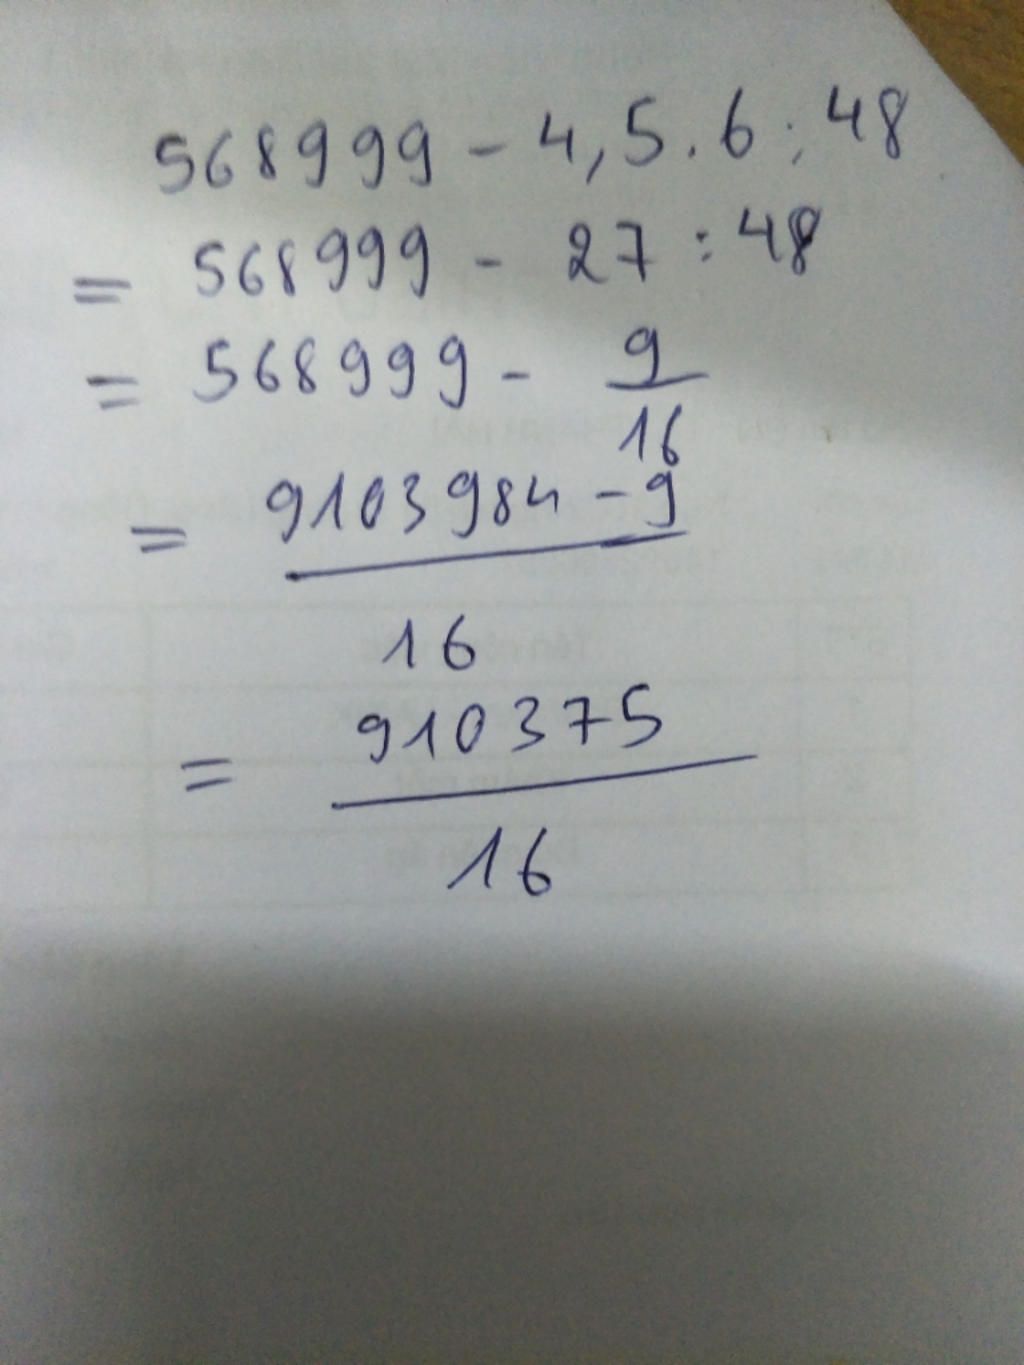 568999 - 4,5.6:48
= 568999 - 27:48
= 568999 - 9/16
= 9103984-9/16
= 910375/16